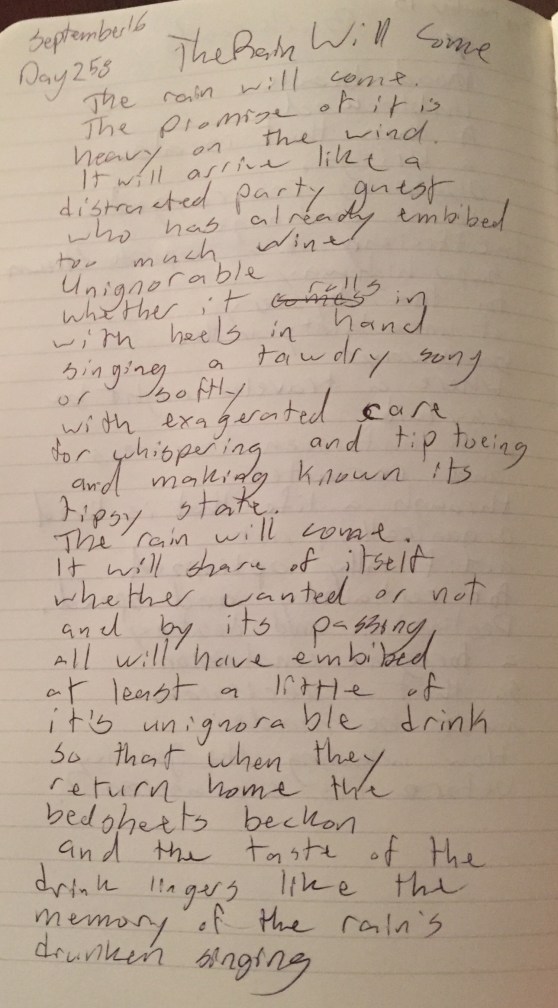 September 16
Day 258
The Rain Will Come
The rain will come.
The promise of it is
heavy on the wind.
It will arrive like a
distracted party guest
who has already embibed
too much wine
Unignorable
whether it comes rolls in
with heels in hand
singing a tawdry song
or softly
with exagerated care
for whispering and tip toeing
and making known its
tipsy state.
The rain will come.
It will share of itself
whether wanted or not
and by its passing,
all will have embibed
at least a little of
it's unignorable drink
so that when they
return home the
bedsheets beckon
and the taste of the
drink lingers like the
memory of the rain's
drunken singing